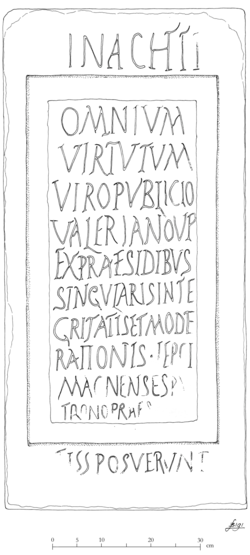 INACHII
OMNIVM
VIRTVTVM
VIROPVBLICIO
VALERIANOVP
EXPRAESIDIBVS
SINGVLARISINTE
GRITATISETMODE
RATIONIS · LEPCI
MAGNENSESP
TRONOPRAES
TISSPOSVERVNT
0 10 20 30
cm